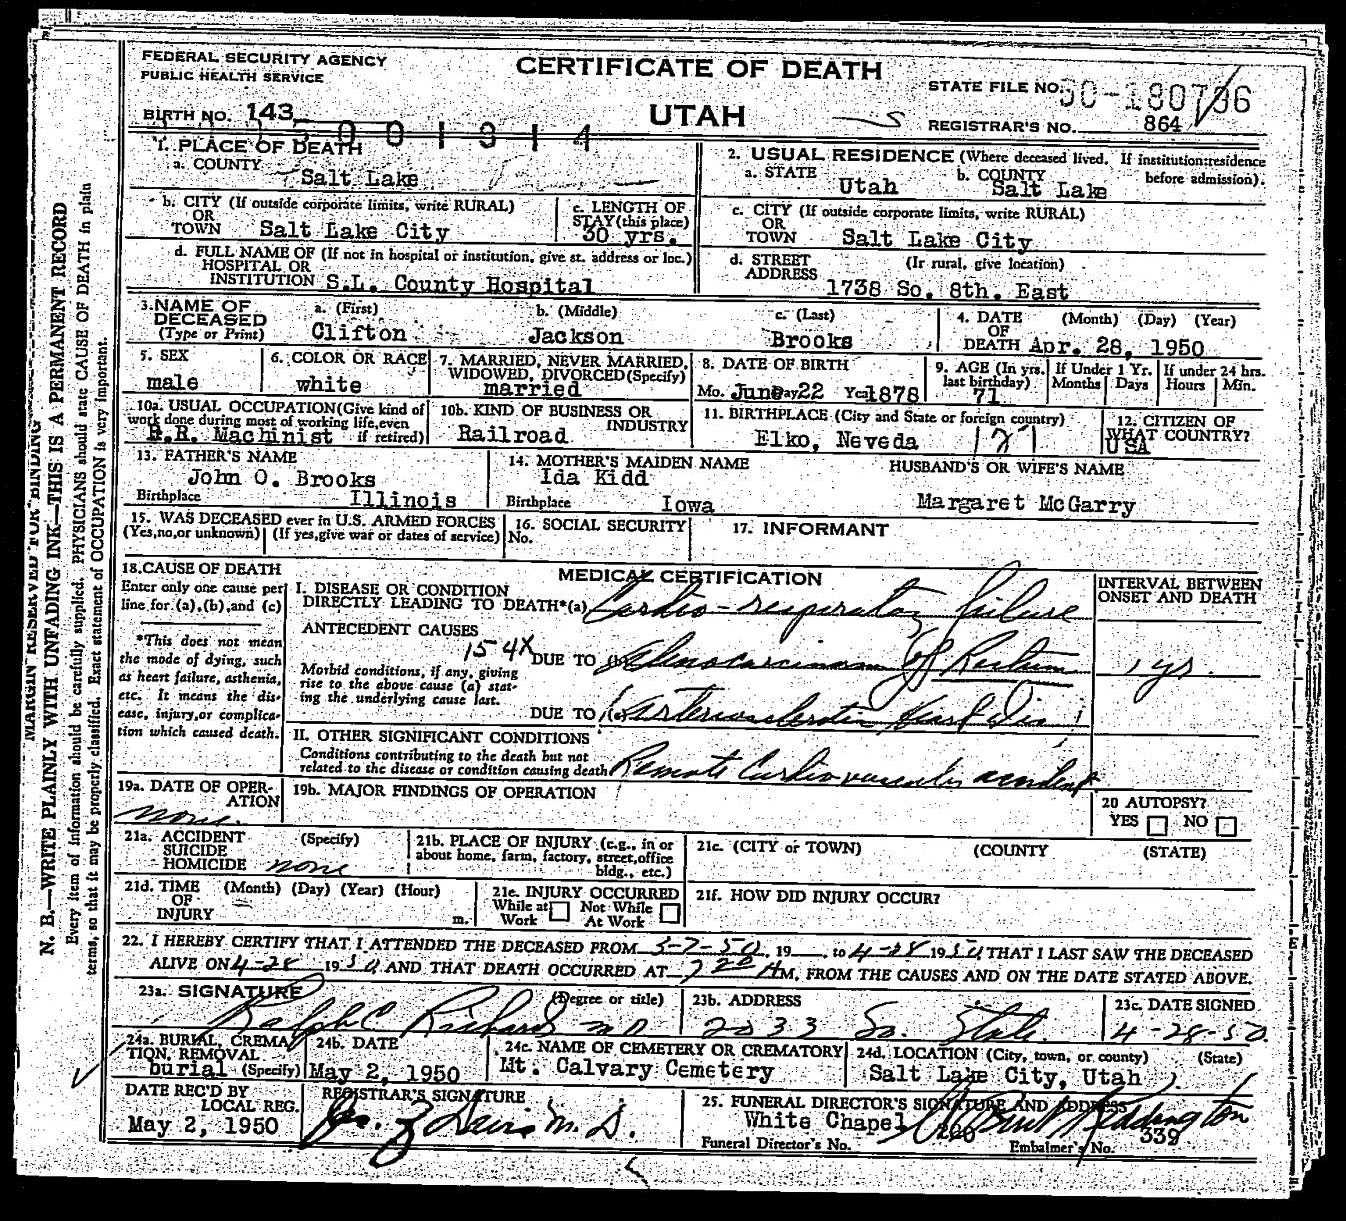 FEDERAL SECURITY AGENCY
PUBLIC HEALTH SERVICE
CERTIFICATE OF DEATH
UTAH
STATE FILE NO.
BIRTH NO. 143
REGISTRAR'S NO. 864
1. PLACE OF DEATH
a. COUNTY
Salt Lake
2. USUAL RESIDENCE (Where deceased lived. If institution:residence
before admission).
a. STATE Utah
b. COUNTY Salt Lake
b. CITY (If outside corporate limits, write RURAL)
OR
TOWN Salt Lake City
c. LENGTH OF
STAY (this place)
30 yrs.
c. CITY (If outside corporate limits, write RURAL)
OR
TOWN Salt Lake City
d. FULL NAME OF (If not in hospital or institution, give st. address or loc.)
HOSPITAL OR
INSTITUTION S.L. County Hospital
d. STREET (If rural, give location)
ADDRESS 1738 So. 8th. East
3. NAME OF
DECEASED
(Type or Print)
a. (First)
Clifton
b. (Middle)
Jackson
c. (Last)
Brooks
4. DATE (Month) (Day) (Year)
OF
DEATH Apr. 28, 1950
5. SEX
male
6. COLOR OR RACE
white
7. MARRIED, NEVER MARRIED,
WIDOWED, DIVORCED (Specify)
married
8. DATE OF BIRTH
Mo. June Day 22 Yr. 1878
9. AGE (In yrs.
last birthday)
71
If Under 1 Yr.
Months Days
If under 24 hrs.
Hours Min.
10a. USUAL OCCUPATION (Give kind of
work done during most of working life, even
if retired)
R.R. Machinist
10b. KIND OF BUSINESS OR
INDUSTRY
Railroad
11. BIRTHPLACE (City and State or foreign country)
Elko, Neveda
12. CITIZEN OF
WHAT COUNTRY?
USA
13. FATHER'S NAME
John O. Brooks
Birthplace Illinois
14. MOTHER'S MAIDEN NAME
Ida Kidd
Birthplace Iowa
HUSBAND'S OR WIFE'S NAME
Margaret McGarry
15. WAS DECEASED ever in U.S. ARMED FORCES
(Yes,no,or unknown) (If yes,give war or dates of service)
16. SOCIAL SECURITY
No.
17. INFORMANT
18. CAUSE OF DEATH
Enter only one cause per
line for (a),(b),and (c)
*This does not mean
the mode of dying, such
as heart failure, asthenia,
etc. It means the dis-
ease, injury,or complica-
tion which caused death.
MEDICAL CERTIFICATION
INTERVAL BETWEEN
ONSET AND DEATH
I. DISEASE OR CONDITION
DIRECTLY LEADING TO DEATH*(a) Cardio-respiratory failure
ANTECEDENT CAUSES
154X
DUE TO (b) Adenocarcinoma of Rectum 1 yr.
Morbid conditions, if any, giving
rise to the above cause (a) stat-
ing the underlying cause last.
DUE TO (c) Arteriosclerotic Heart Dis
II. OTHER SIGNIFICANT CONDITIONS
Conditions contributing to the death but not
related to the disease or condition causing death
Remote Cardiovascular accident.
19a. DATE OF OPER-
ATION
none.
19b. MAJOR FINDINGS OF OPERATION
20 AUTOPSY?
YES NO
21a. ACCIDENT (Specify)
SUICIDE
HOMICIDE none
21b. PLACE OF INJURY (e.g., in or
about home, farm, factory, street,office
bldg., etc.)
21c. (CITY or TOWN) (COUNTY (STATE)
21d. TIME (Month) (Day) (Year) (Hour)
OF
INJURY m.
21e. INJURY OCCURRED
While at Not While
Work At Work
21f. HOW DID INJURY OCCUR?
22. I HEREBY CERTIFY THAT I ATTENDED THE DECEASED FROM 3-7-50, 19__, to 4-28 1950, THAT I LAST SAW THE DECEASED
ALIVE ON 4-28 1950, AND THAT DEATH OCCURRED AT 7 20 AM, FROM THE CAUSES AND ON THE DATE STATED ABOVE.
23a. SIGNATURE (Degree or title)
Ralph C Richards MD
23b. ADDRESS
2033 So. State.
23c. DATE SIGNED
4-28-50.
24a. BURIAL, CREMA-
TION, REMOVAL
burial (Specify)
24b. DATE
May 2, 1950
24c. NAME OF CEMETERY OR CREMATORY
Mt. Calvary Cemetery
24d. LOCATION (City, town, or county) (State)
Salt Lake City, Utah
DATE REC'D BY
LOCAL REG.
May 2, 1950
REGISTRAR'S SIGNATURE
M.D.
25. FUNERAL DIRECTOR'S SIGNATURE AND ADDRESS
White Chapel
Funeral Director's No.
Embalmer's No. 339
MARGIN RESERVED FOR BINDING
N. B.—WRITE PLAINLY WITH UNFADING INK—THIS IS A PERMANENT RECORD
Every item of information should be carefully supplied. PHYSICIANS should state CAUSE OF DEATH in plain
terms, so that it may be properly classified. Exact statement of OCCUPATION is very important.